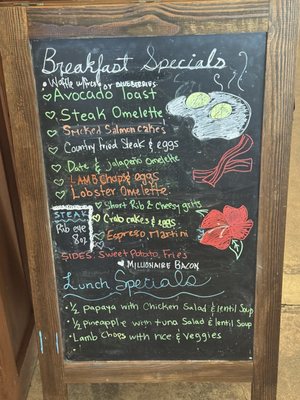 Breakfast Specials
Waffle w/ fresh or blueberries
Avocado Toast
Steak Omelette
Smoked Salmon cakes
Country fried Steak & eggs
Date & jalapeño omelette
Lamb Chops & eggs
Lobster Omelette
Short Rib & Cheesy grits
Crab cakes & eggs
Espresso Martini
STEAK
Rib eye
8oz
SIDES: Sweet Potato, Fries
Millionaire Bacon
Lunch Specials
½ papaya with Chicken Salad & lentil Soup
½ pineapple with tuna Salad & lentil Soup
Lamb Chops with rice & veggies